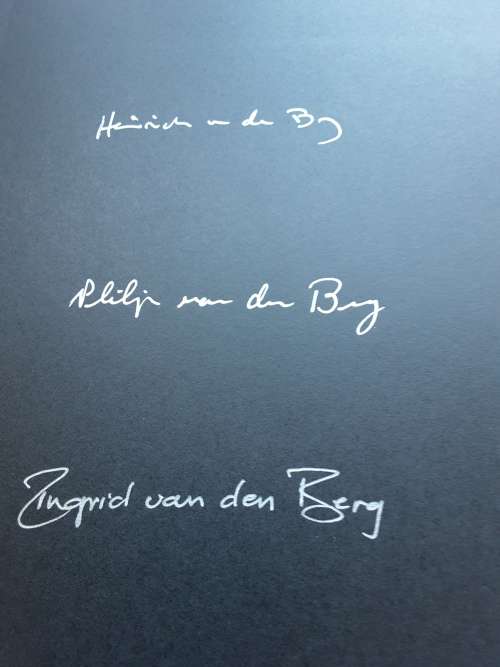 Heinrich van den Berg
Philip van den Berg
Ingrid van den Berg